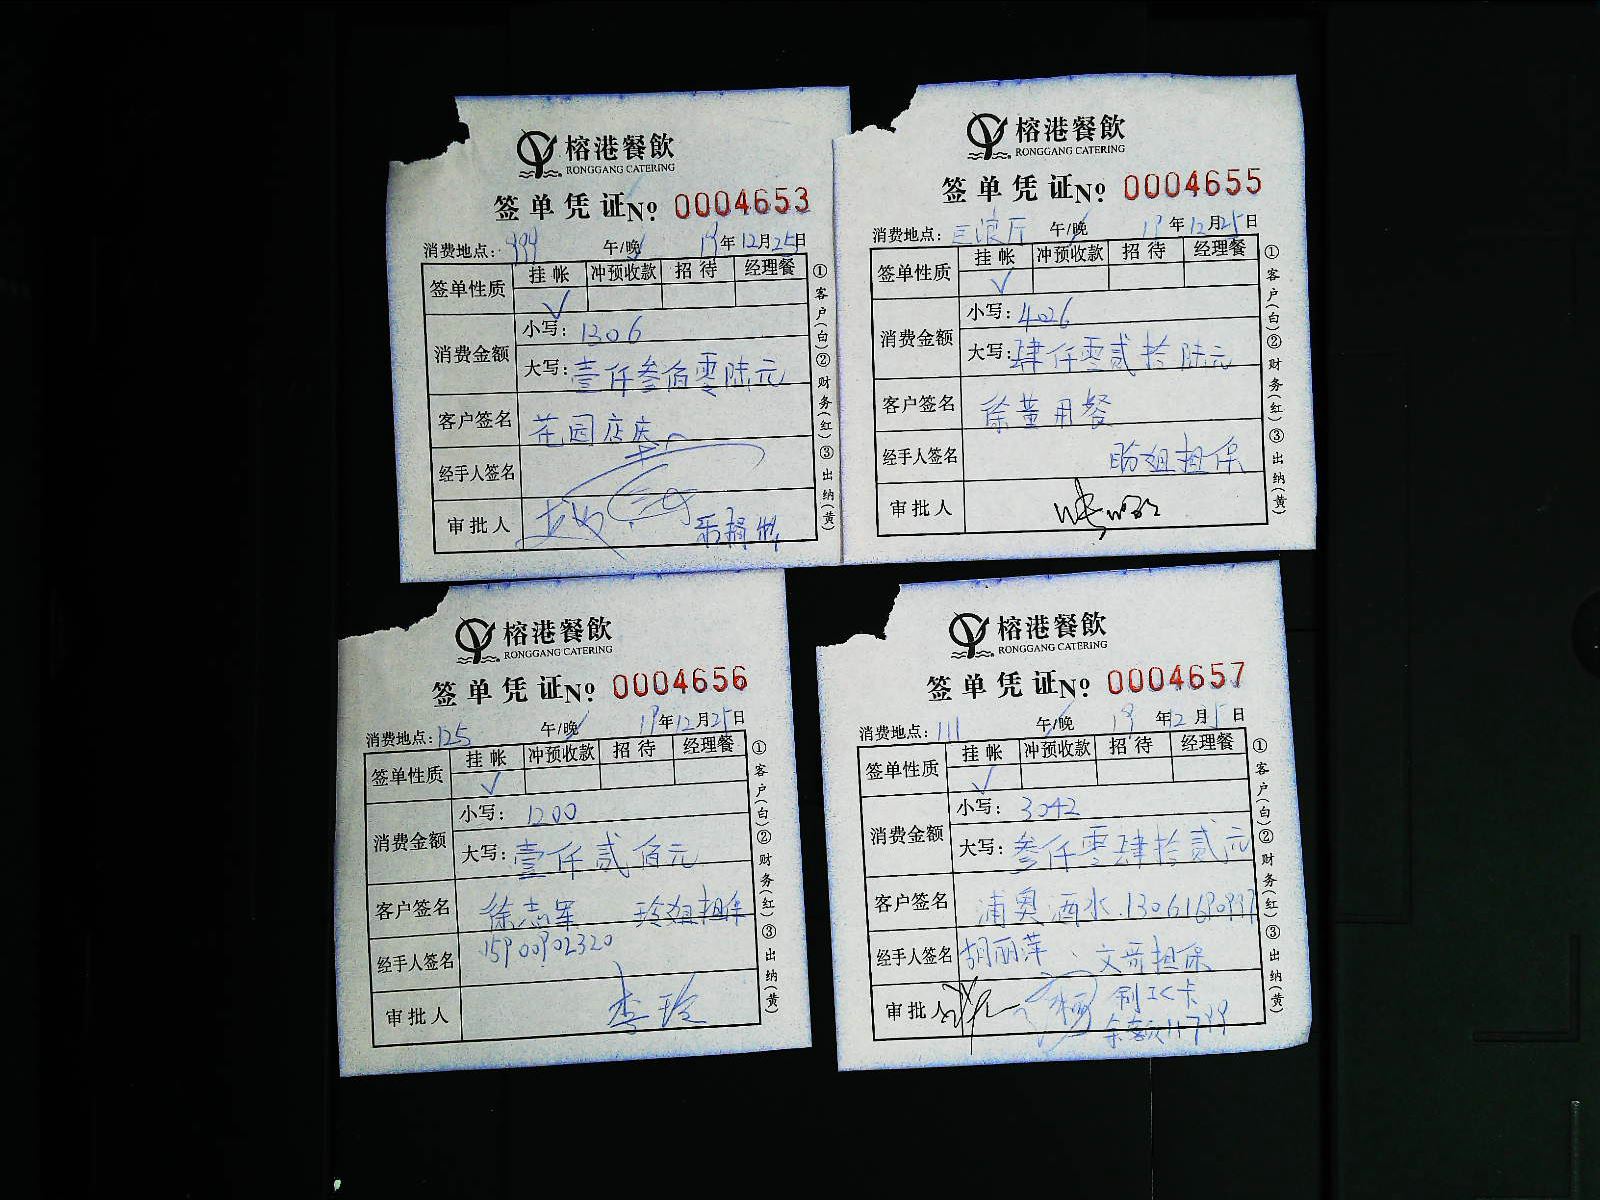 榕港餐飲
RONGGANG CATERING
签单凭证№ 0004653
消费地点: 999 午/晚 19年12月25日
签单性质 挂帐 冲预收款 招待 经理餐
√
消费金额 小写: 1306
大写: 壹仟叁佰零陆元
客户签名 花园店庆
经手人签名
审批人
①客户(白)②财务(红)③出纳(黄)
榕港餐飲
RONGGANG CATERING
签单凭证№ 0004655
消费地点: 巨浪厅 午/晚 19年12月25日
签单性质 挂帐 冲预收款 招待 经理餐
√
消费金额 小写: 4026
大写: 肆仟零贰拾陆元
客户签名 徐董用餐
经手人签名 盼姐担保
审批人
①客户(白)②财务(红)③出纳(黄)
榕港餐飲
RONGGANG CATERING
签单凭证№ 0004656
消费地点: 125 午/晚 19年12月25日
签单性质 挂帐 冲预收款 招待 经理餐
√
消费金额 小写: 1200
大写: 壹仟贰佰元
客户签名 徐志军 玲姐担保
经手人签名 15900902320
审批人 李玲
①客户(白)②财务(红)③出纳(黄)
榕港餐飲
RONGGANG CATERING
签单凭证№ 0004657
消费地点: 111 午/晚 19年12月5日
签单性质 挂帐 冲预收款 招待 经理餐
√
消费金额 小写: 3042
大写: 叁仟零肆拾贰元
客户签名 浦奥酒水.
经手人签名 胡丽萍、文哥担保
审批人 刷IC卡
余额11799
①客户(白)②财务(红)③出纳(黄)